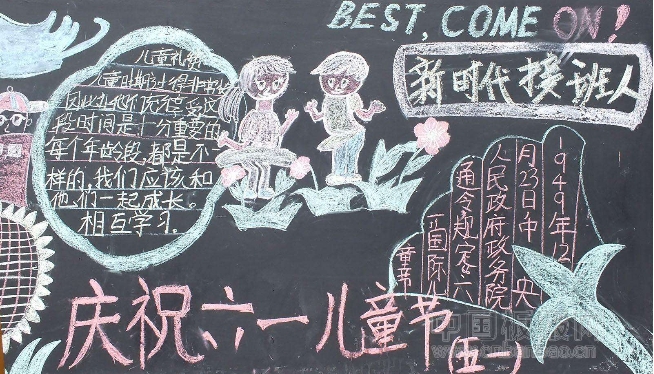 BEST, COME ON!
新时代接班人
儿童礼物
儿童时期过得非常快
因此让他们充分享受这
段时间是十分重要的
每个年龄段,都是不一
样的,我们应该和
他们一起成长。
相互学习。
1949年12
月23日中央
人民政府政务院
通令规定六
一国际儿
童节
庆祝六一儿童节
(五一)